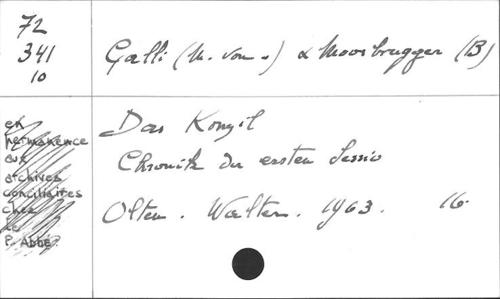 72
341
10
Galli (M. von.) & Moosbrugger (B)
en
permanence
aux
archives
conciliaires
chez
le
P. Abbé
Das Konzil
Chronik der ersten Sessio
Olten. Walter. 1963. 16.